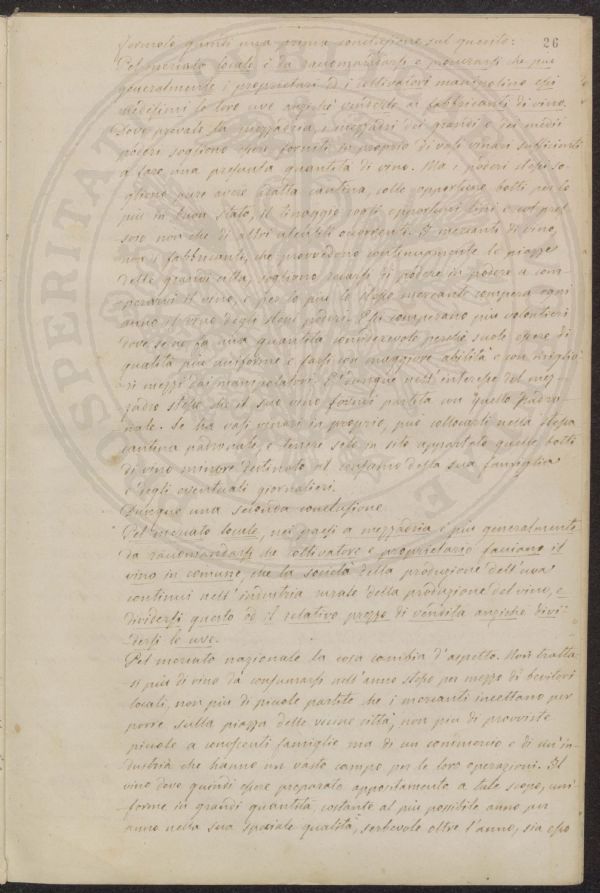 26
formulo quindi una prima conclusione sul quesito:
Pel mercato locale è da raccomandarsi e procurarsi che più
generalmente i proprietari ed i coltivatori manipolino essi
medesimi le loro uve anziché venderle ai fabbricanti di vino.
Dove prevale la mezzadria, i mezzadri dei grandi e dei medii
poderi sogliono essere forniti in proprio di vasi vinari sufficienti
a fare una quantità di vino. Ma i poderi stessi so-
gliono pure avere cantina, colle opportune botti per lo
più in buon stato, il tinaggio cogli opportuni tini e col pres-
soio non che di altri utensili occorrenti. I mercanti di vino,
non i fabbricanti, che provvedono continuamente le piazze
delle grandi città, sogliono recarsi di podere in podere a com-
perarvi il vino, e per lo più lo stesso mercante compera ogni
anno il vino degli stessi poderi. Essi comperano più volontieri
dove se ne fa una quantità considerevole perché suole essere di
qualità più uniforme e farsi con maggiore abilità e con miglio-
ri mezzi dai manipolatori. È dunque nell'interesse del mez-
zadro stesso che il suo vino formi partita con quello padro-
nale. Se ha vasi vinari in proprio, può collocarli nella stessa
cantina padronale, e tenere solo in sito appartato quelle botti
di vino minore destinato al consumo della sua famiglia
e degli eventuali giornalieri.
Dunque una seconda conclusione
Pel mercato locale, nei paesi a mezzadria è più generalmente
da raccomandarsi che coltivatore e proprietario facciano il
vino in comune, che la società della produzione dell'uva
continui nell'industria rurale della produzione del vino, e
dividersi questo od il relativo prezzo di vendita anziché divi-
dersi le uve.
Pel mercato nazionale la cosa cambia d'aspetto. Non tratta-
si più di vino da consumarsi nell'anno stesso per mezzo di bevitori
locali, non più di piccole partite che i mercanti incettano per
porre sulla piazza delle vicine città, non più di provviste
piccole a conoscenti famiglie ma di un commercio e di un'in-
dustria che hanno un vasto campo per le loro operazioni. Il
vino deve quindi essere preparato appositamente a tale scopo, uni-
forme in grandi quantità, costante al più possibile anno per
anno nella sua speciale qualità, serbevole oltre l'anno, sia esso